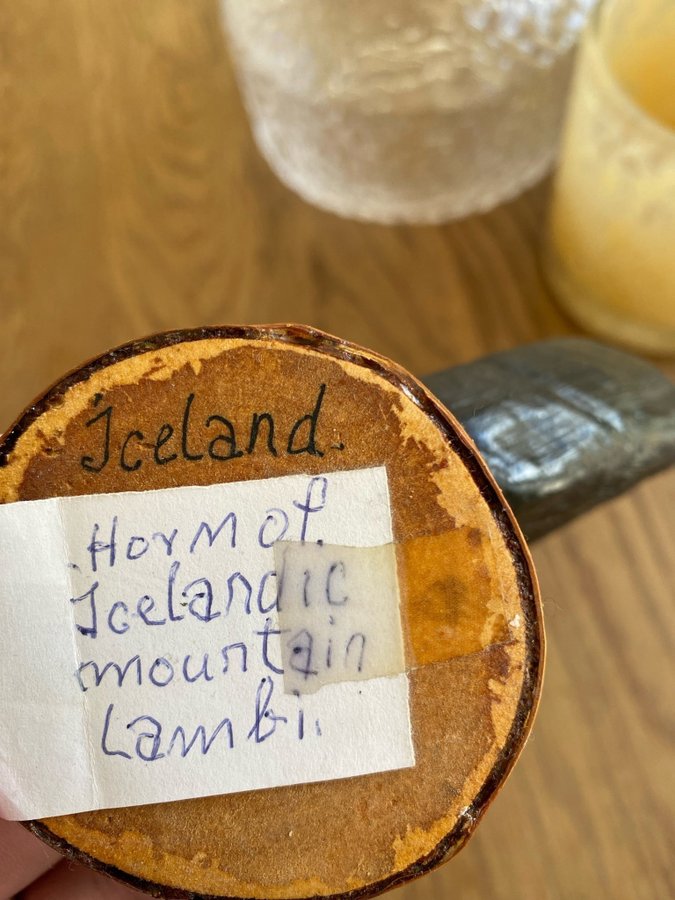 Iceland.
Horn of.
Icelandic
mountain
Lambi.